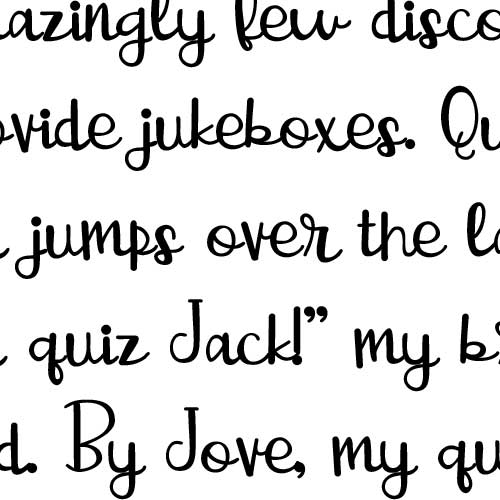 azingly few disco
ovide jukeboxes. Qu
jumps over the la
quiz Jack!” my b
d. By Jove, my qu